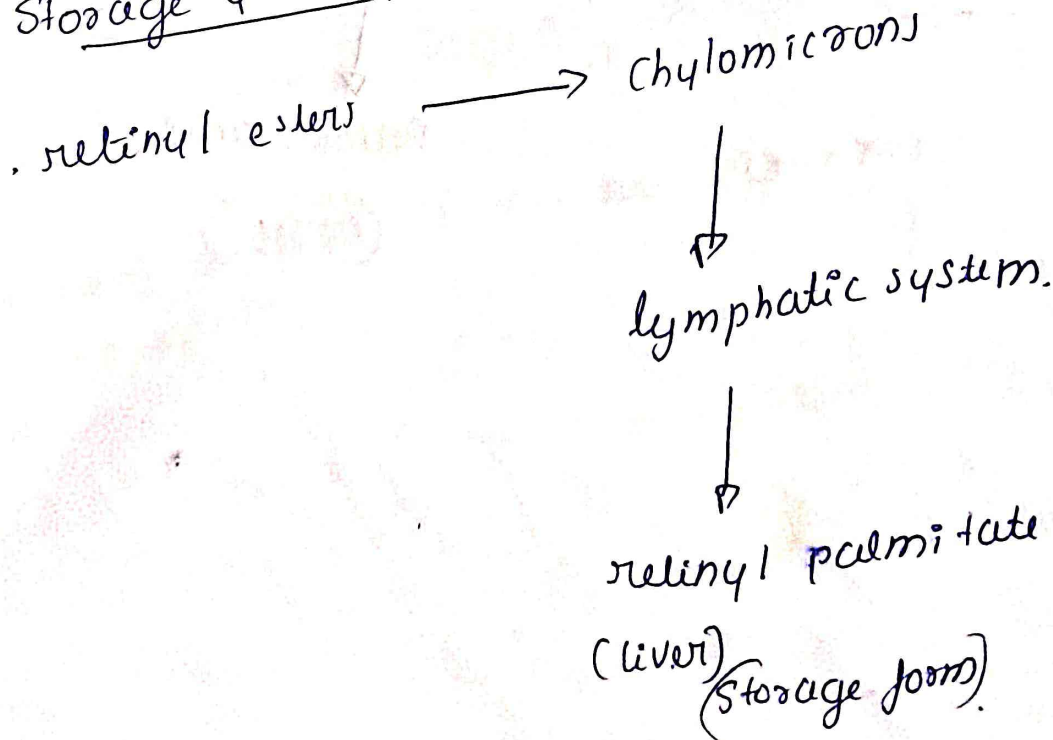 Storage
. retinyl esters → Chylomicrons
lymphatic system.
retinyl palmitate
(liver)
(Storage form).